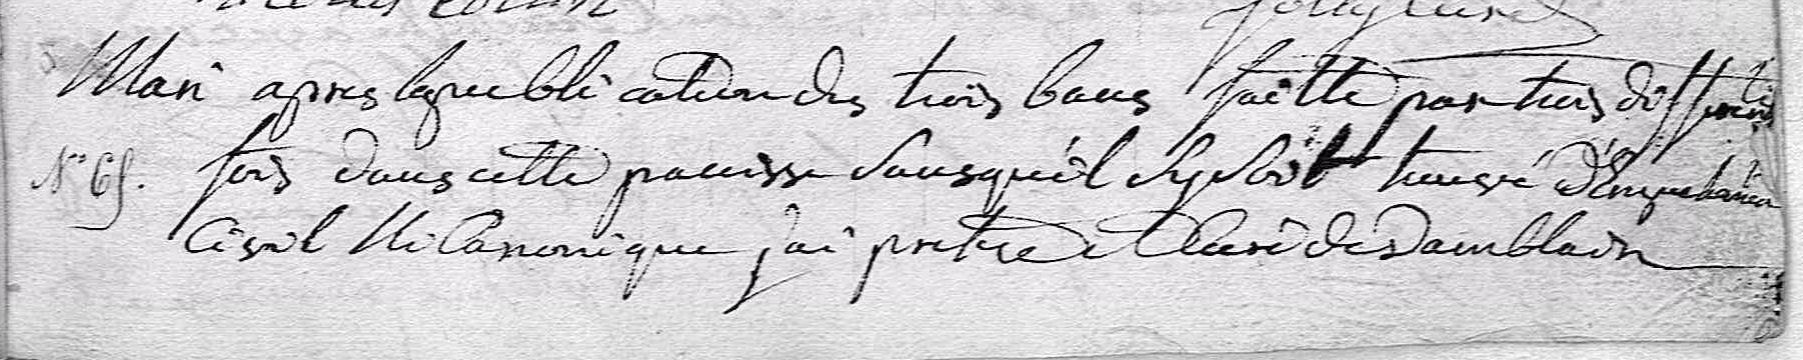 Mari apres la publication des trois bans faitte par trois differentes
N° 65. fois dans cette paroisse sans qu'il sy soit trouvé d'empechement
Civil Ni Canonique j'ai pretre et Curé de Damblain